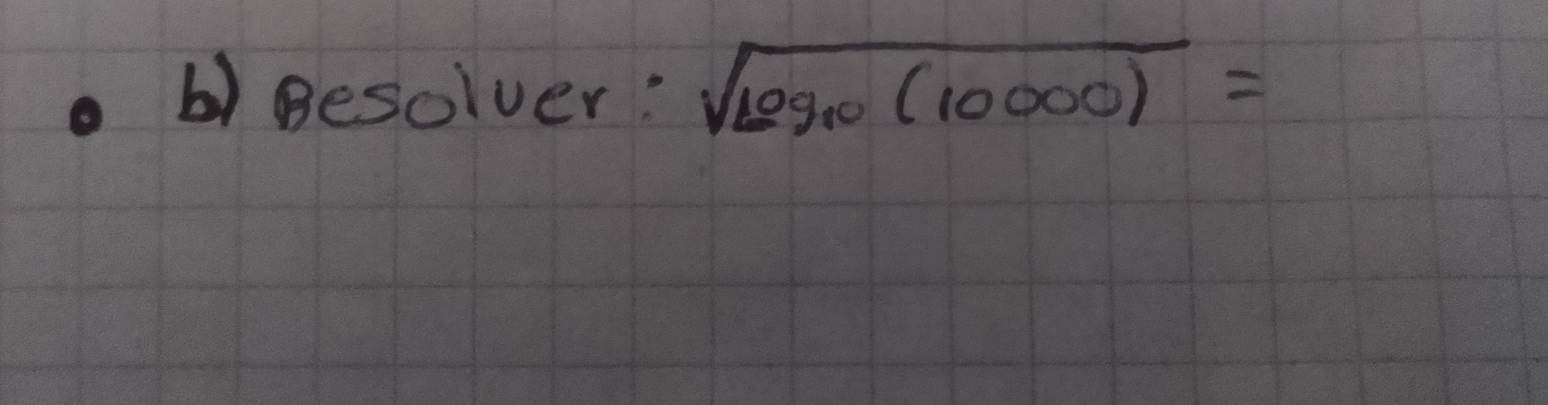 b) Resolver: √log₁₀ (10000) =